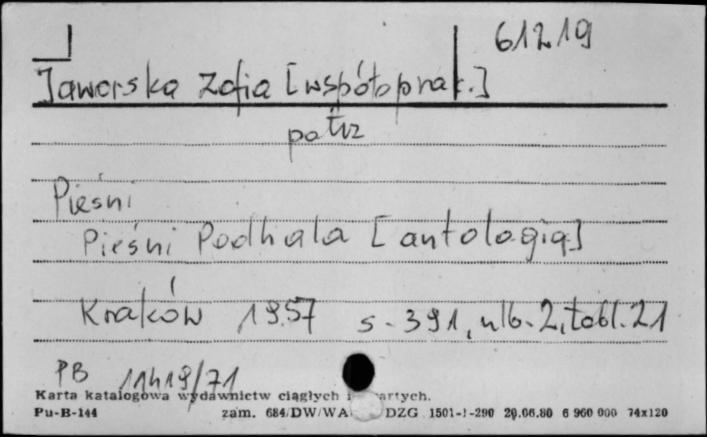 61219
Jaworska Zofia [współoprac.]
patrz
Pieśni
Pieśni Podhala [antologia]
Kraków 1957 s. 391, nlb. 2, tabl. 21
PB 11419/71
Karta katalogowa wydawnictw ciągłych i zwartych.
Pu-B-144 zam. 684/DW/WA DZG 1501-1-290 20.06.80 6 960 000 74x120